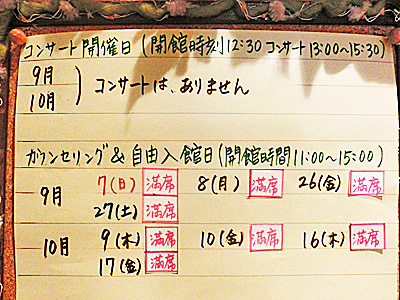 コンサート開催日(開館時刻12:30 コンサート13:00〜15:30)
9月
10月 コンサートは、ありません
カウンセリング&自由入館日(開館時間11:00〜15:00)
9月 7(日) 満席 8(月) 満席 26(金) 満席
27(土) 満席
10月 9(木) 満席 10(金) 満席 16(木) 満席
17(金) 満席